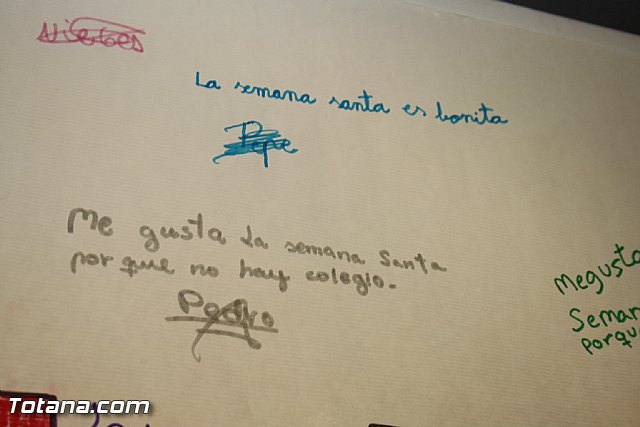 Nieves
La semana santa es bonita
Pepe
Me gusta la semana Santa
por que no hay colegio.
Pedro
Megusta
Seman
porqu
Totana.com